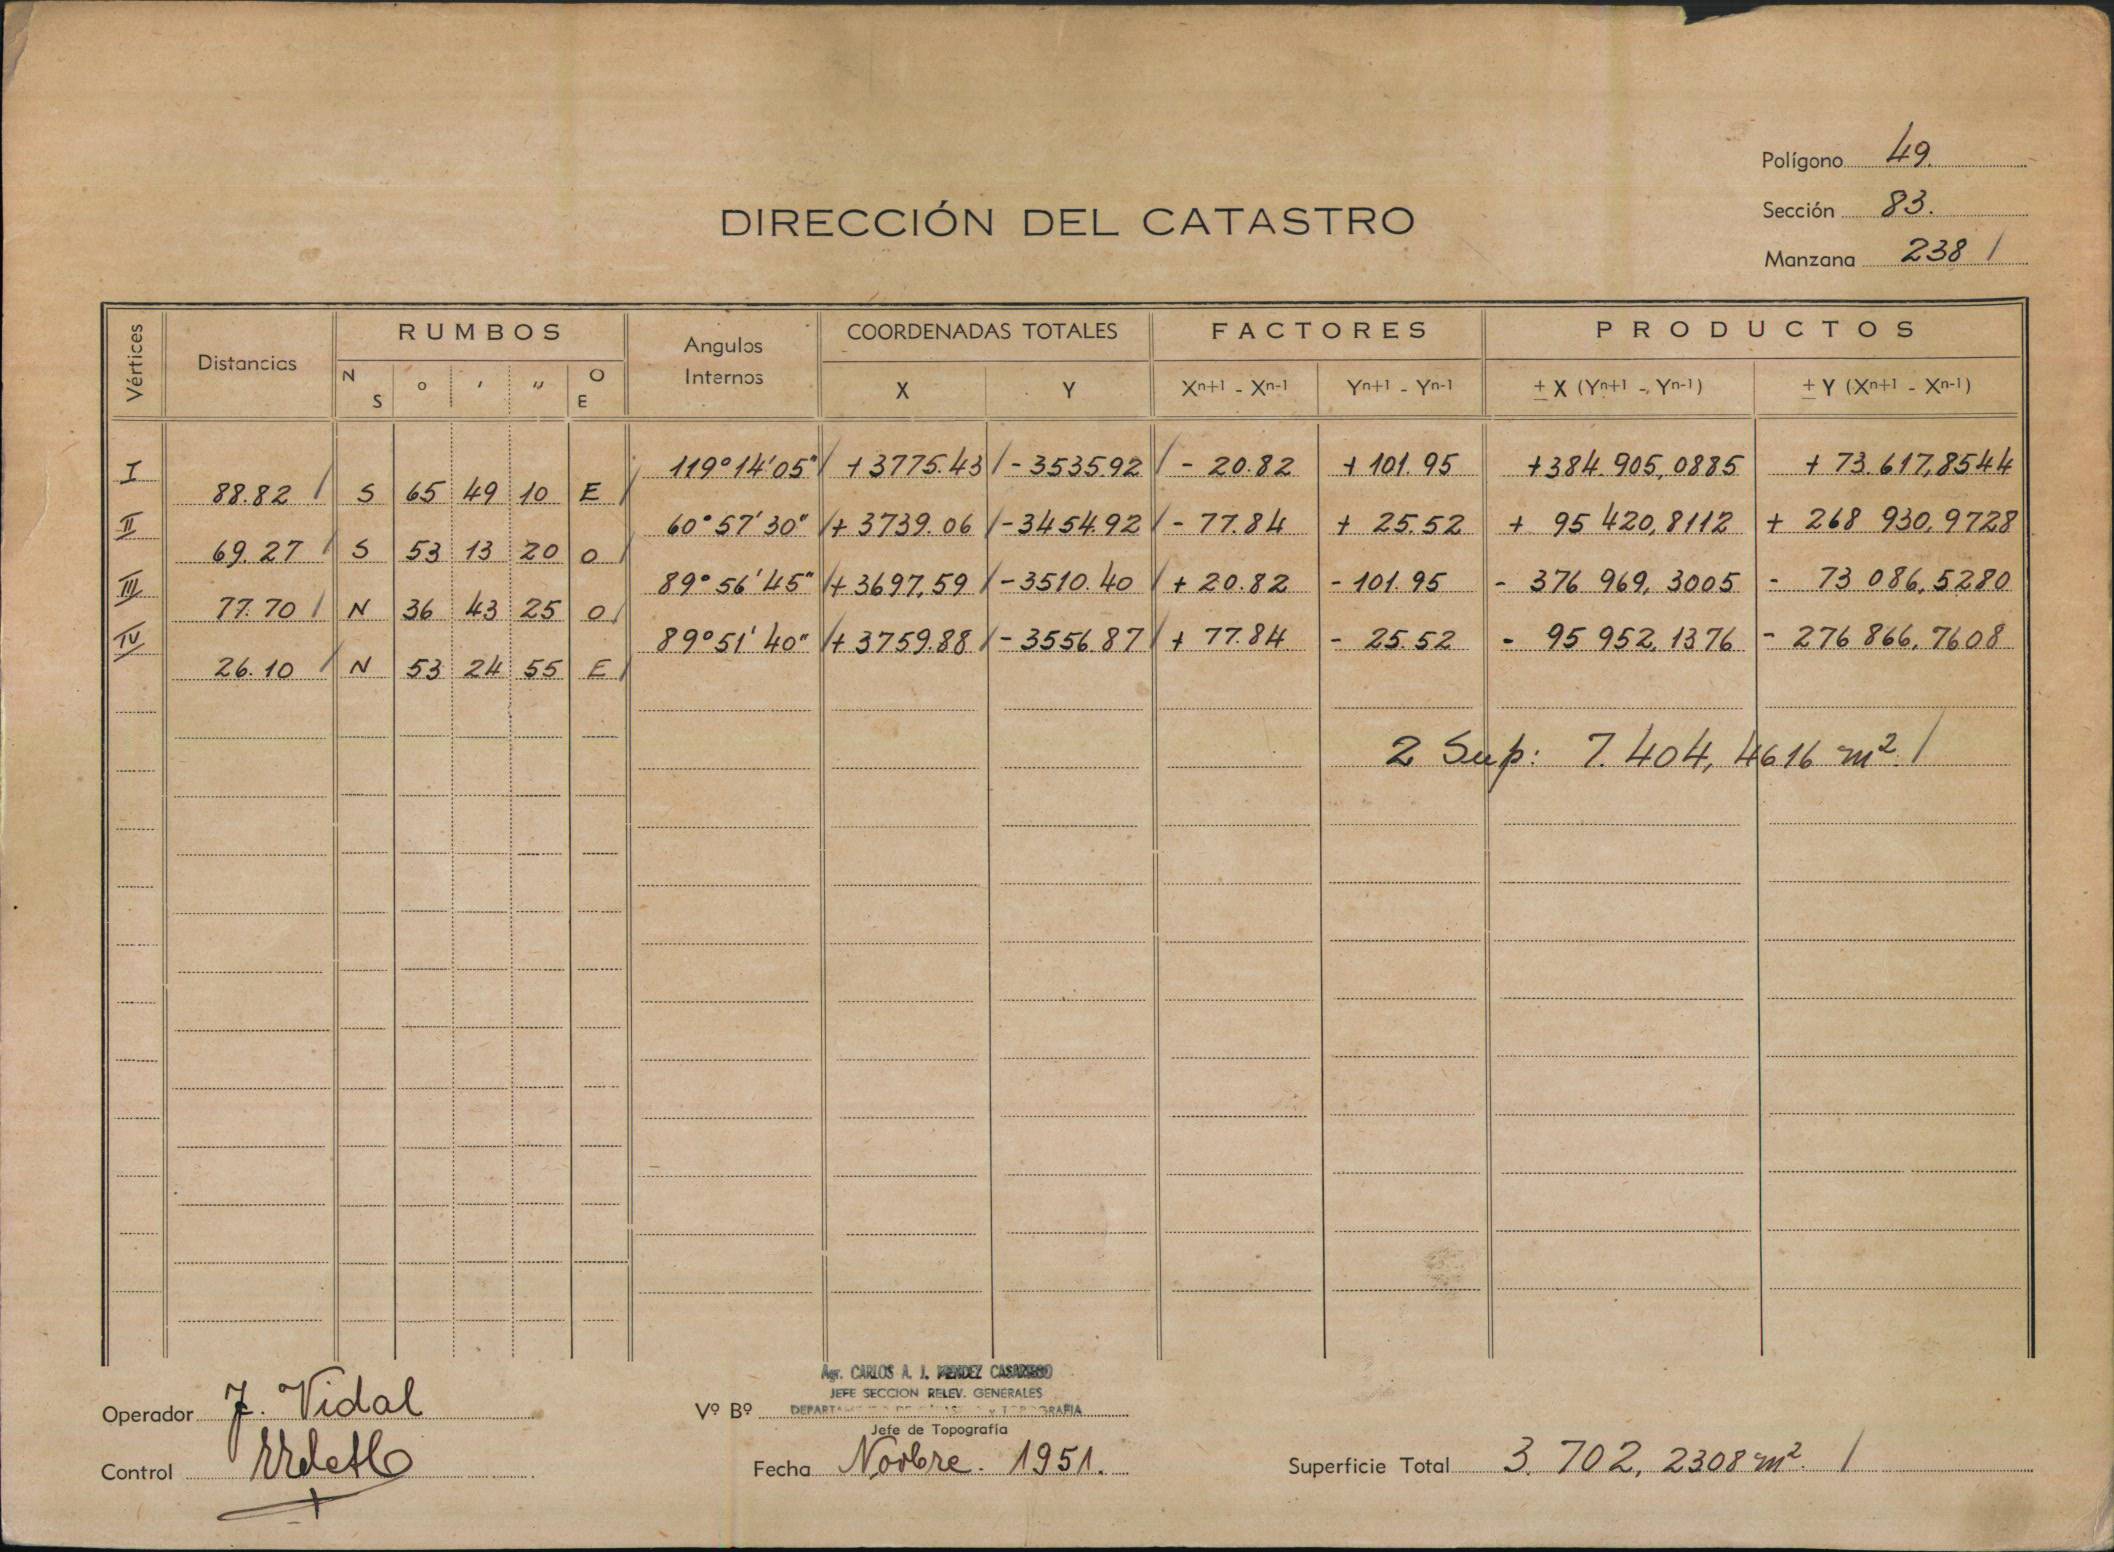 Polígono 49.
Sección 83.
Manzana 238 /
DIRECCIÓN DEL CATASTRO
Vértices Distancias RUMBOS Angulos Internos COORDENADAS TOTALES FACTORES PRODUCTOS
N S ° ' " O E X Y Xn+1 - Xn-1 Yn+1 - Yn-1 ± X (Yn+1 - Yn-1) ± Y (Xn+1 - Xn-1)
I 119°14'05" / + 3775.43 / - 3535.92 / - 20.82 + 101.95 + 384.905,0885 + 73.617,8544
88.82 / S 65 49 10 E /
II 60°57'30" / + 3739.06 / - 3454.92 / - 77.84 + 25.52 + 95 420,8112 + 268 930,9728
69.27 / S 53 13 20 O /
III 89°56'45" / + 3697,59 / - 3510.40 / + 20.82 - 101.95 - 376 969,3005 - 73 086,5280
77.70 / N 36 43 25 O /
IV 89°51'40" / + 3759.88 / - 3556.87 / + 77.84 - 25.52 - 95 952,1376 - 276 866,7608
26.10 / N 53 24 55 E /
2 Sup: 7.404,4616 m² /
Agr. CARLOS A. J. MENDEZ CASARIEGO
JEFE SECCION RELEV. GENERALES
Operador J. Vidal Vº Bº
Jefe de Topografía
Control Fecha Novbre. 1951. Superficie Total 3.702,2308 m². /